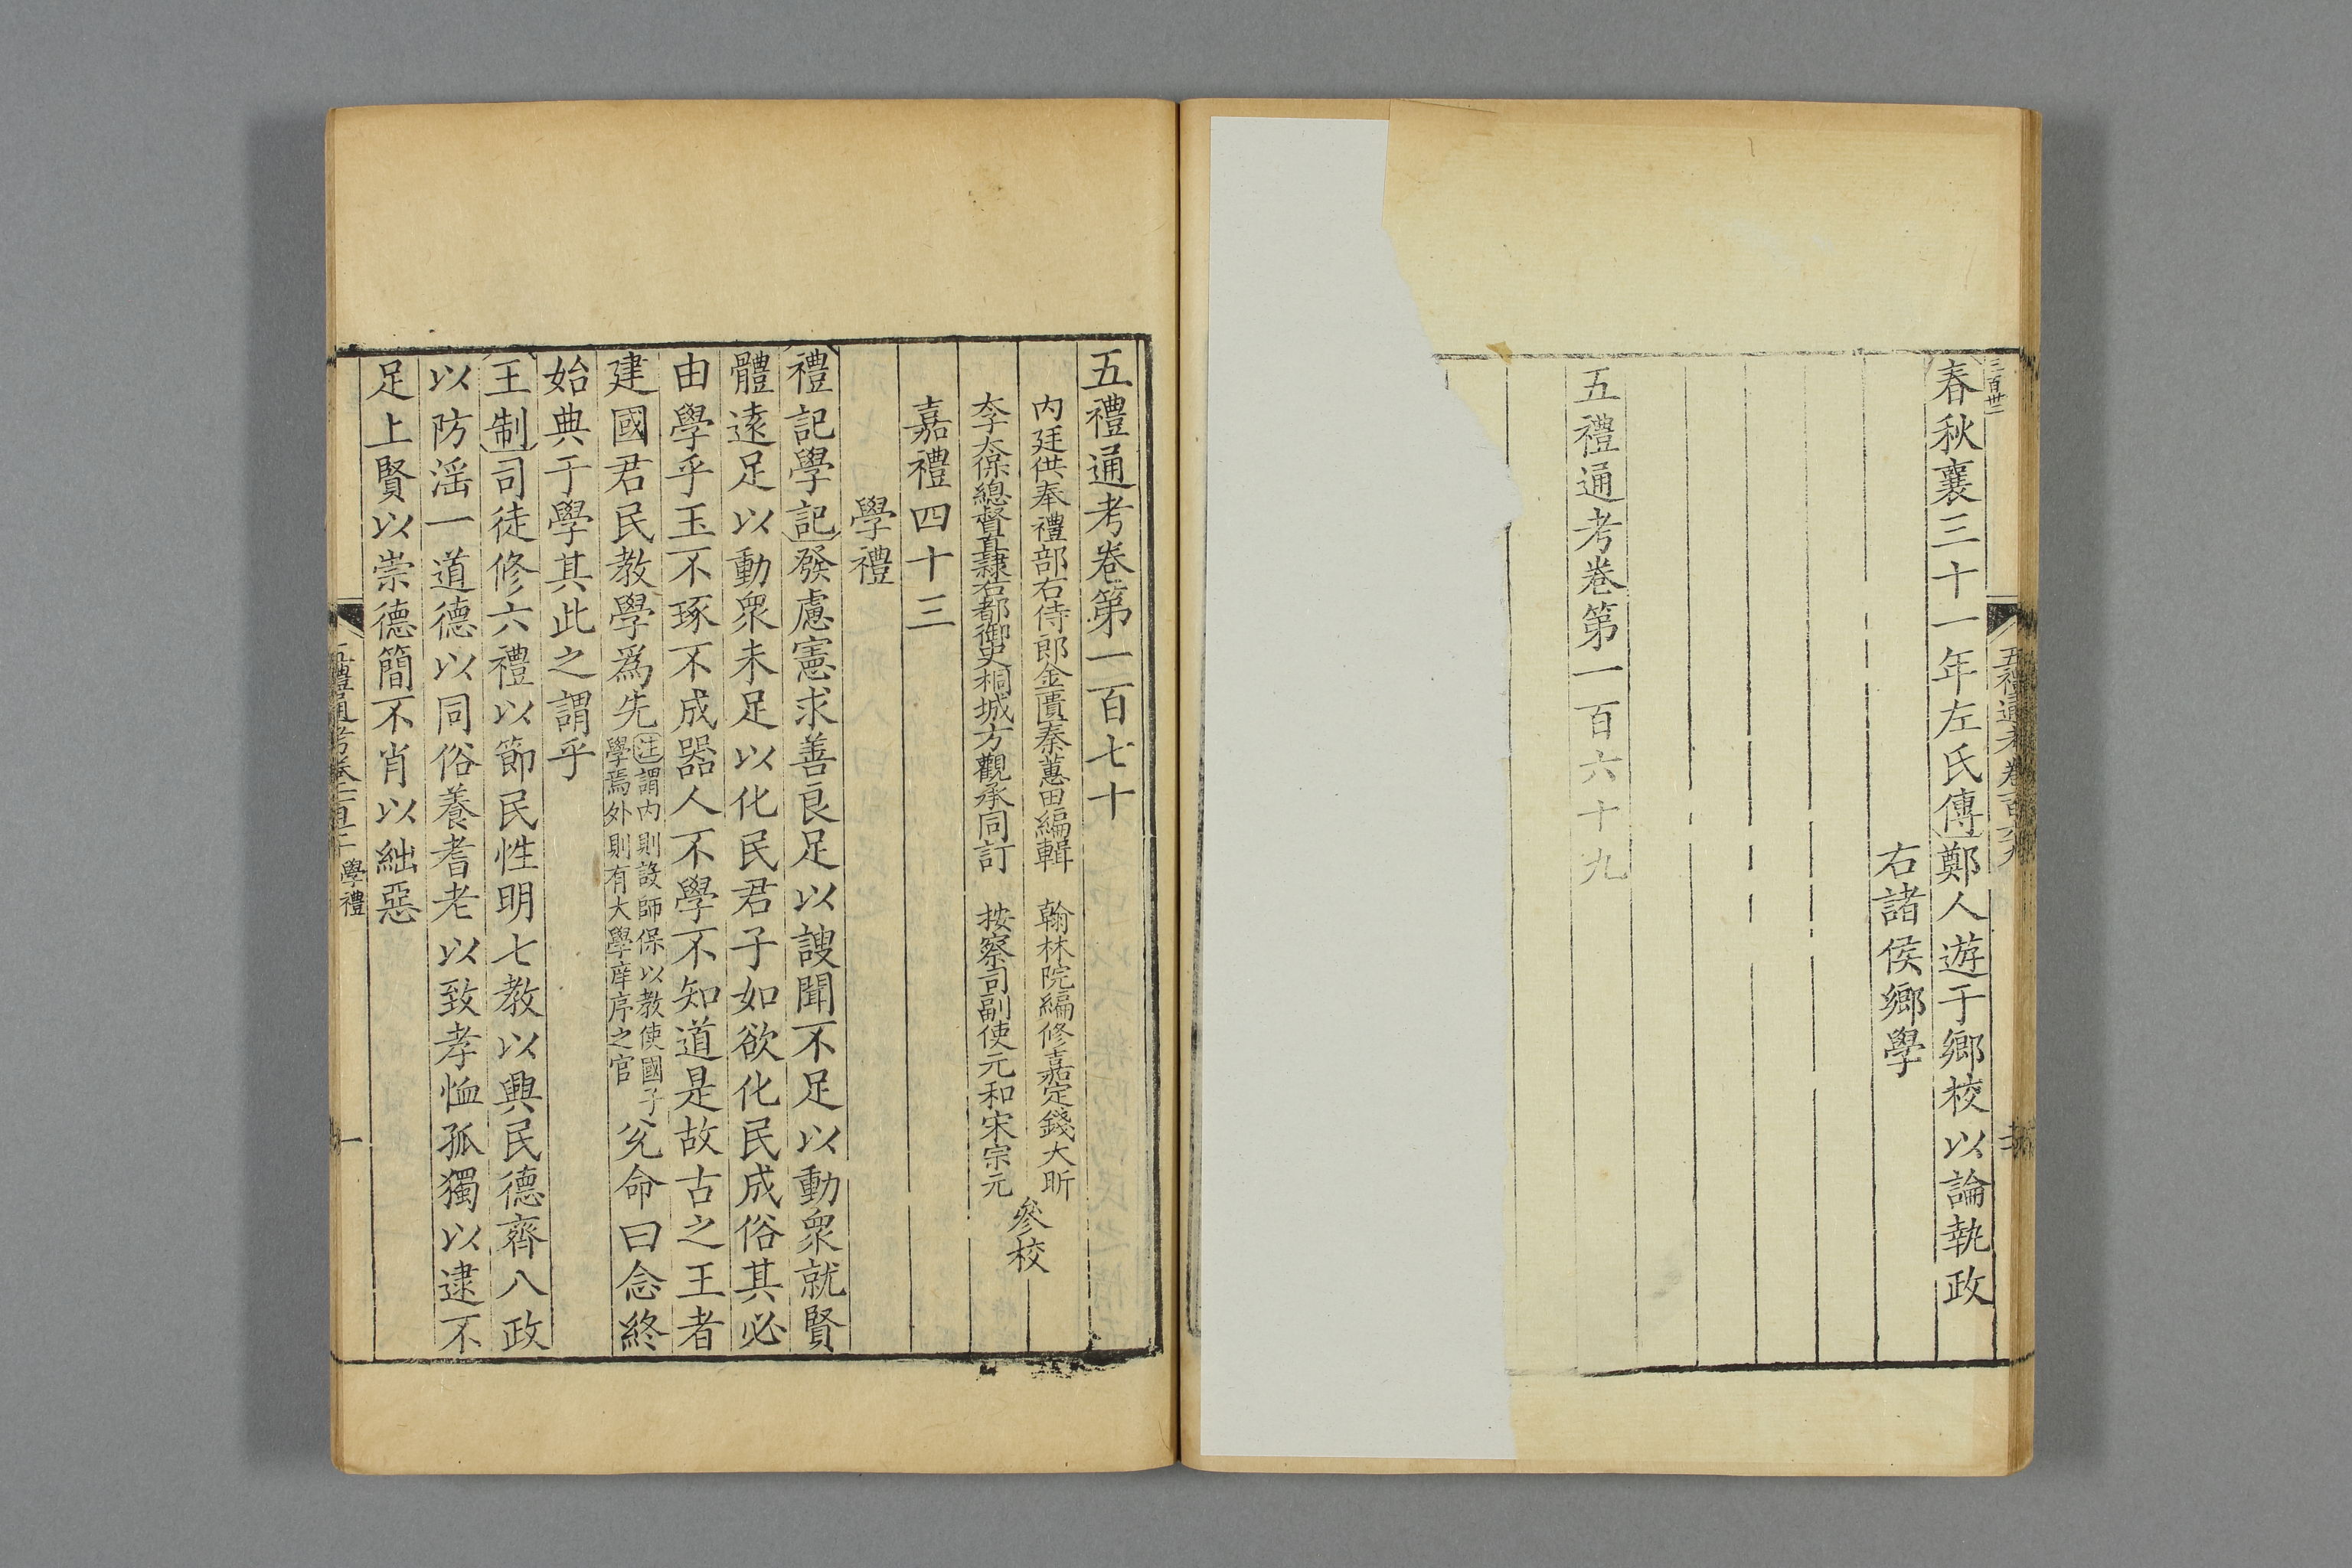 三百廿一
春秋襄三十一年左氏傳鄭人遊于鄉校以論執政
右諸侯鄉學
五禮通考卷第一百六十九
五禮通考卷第一百七十
內廷供奉禮部右侍郎金匱秦蕙田編輯　翰林院編修嘉定錢大昕
李太保總督直隸右都御史桐城方觀承同訂　按察司副使元和宋宗元
參校
嘉禮四十三
學禮
禮記學記發慮憲求善良足以謏聞不足以動衆就賢
體遠足以動衆未足以化民君子如欲化民成俗其必
由學乎玉不琢不成器人不學不知道是故古之王者
建國君民教學爲先注謂內則設師保以教使國子學焉外則有大學庠序之官兊命曰念終
始典于學其此之謂乎
王制司徒修六禮以節民性明七教以興民德齊八政
以防淫一道德以同俗養耆老以致孝恤孤獨以逮不
足上賢以崇德簡不肖以絀惡
學禮
一